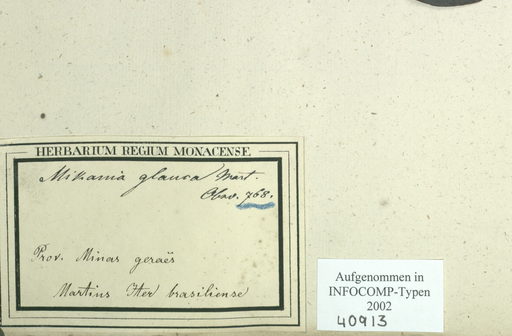 HERBARIUM REGIUM MONACENSE
Mikania glauca Mart.
Obs. 768.
Prov. Minas geraës
Martius Iter brasiliense
Aufgenommen in
INFOCOMP-Typen
2002
40913